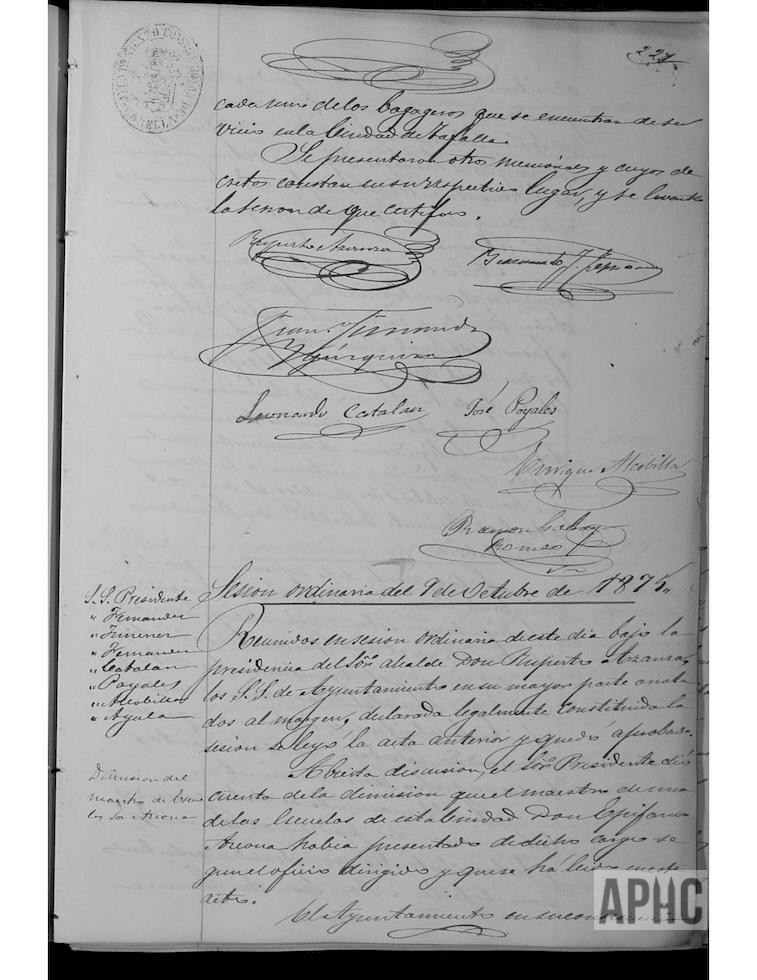 221
cada uno de los bagageros que se encuentran de ser
vicio en la Ciudad de Tafalla.
Se presentaron otros memoriales y cuyos de
cretos constan en su respectivo lugar, y se levantó
la sesion de que certifico.
Ruperto Azanza
Juan J. Fernandez
Leonardo Catalan
José Poyales
Enrique Alcobilla
Ramon
Sesion ordinaria del 9 de Octubre de 187
S.S. Presidente
" Fernandez
" Ximenez
" Fernandez
" Catalan
" Poyales
" Alcobilla
" Ayala
Reunidos en sesion ordinaria de este dia bajo la
presidencia del Sor. alcalde Don Ruperto Azanza,
los S.S. de Ayuntamiento en su mayor parte anota
dos al margen, declarada legalmente constituida la
sesion se leyó la acta anterior y quedó aprobada.
Dimision del
maestro de Escue
las Sor Arcona
Abierta discusion, el Sor. Presidente dió
cuenta de la dimision que el maestro de una
de las Escuelas de esta Ciudad Don Epifanio
Arcona habia presentado de dicho cargo se
gun el oficio dirigido y que se há leido en este
acto.
El Ayuntamiento en su
APHC